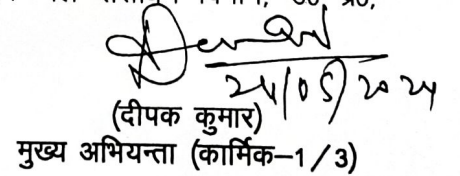 उ० प्र०,
24/05/2024
(दीपक कुमार)
मुख्य अभियन्ता (कार्मिक–1/3)